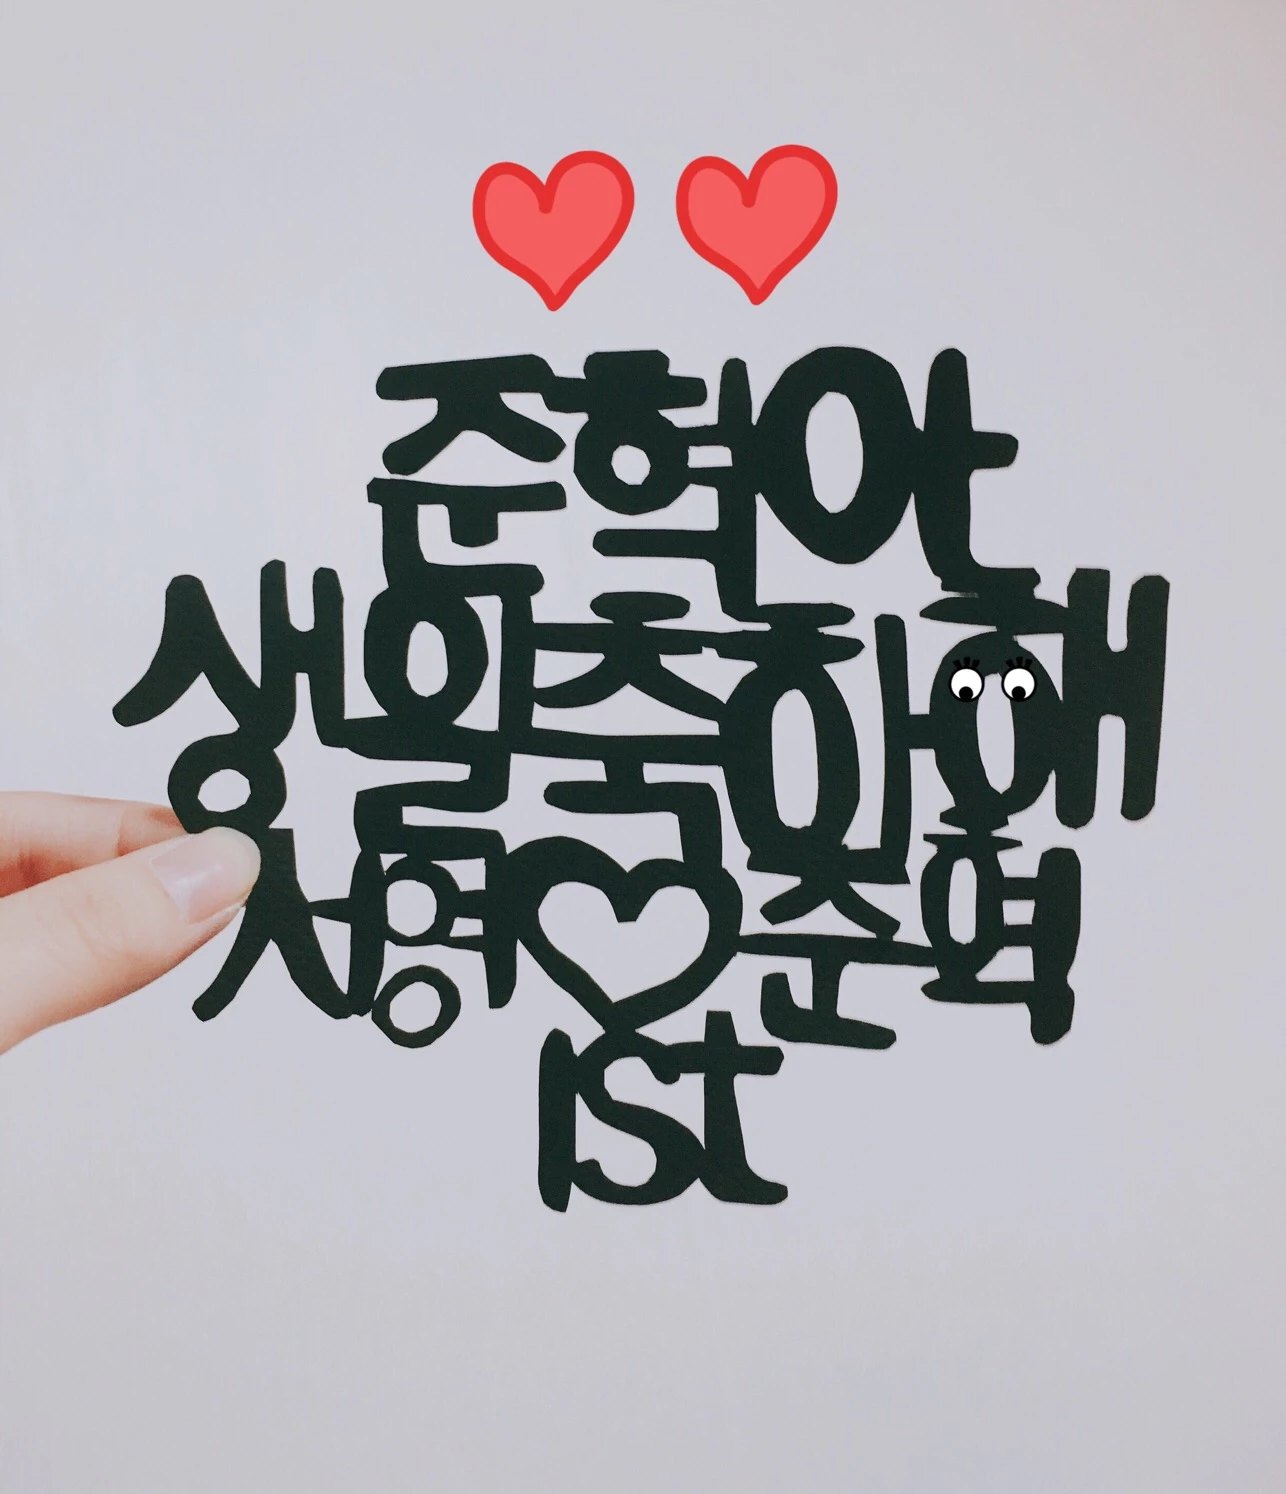 준혁아
생일축하해
서영♡준혁
1st